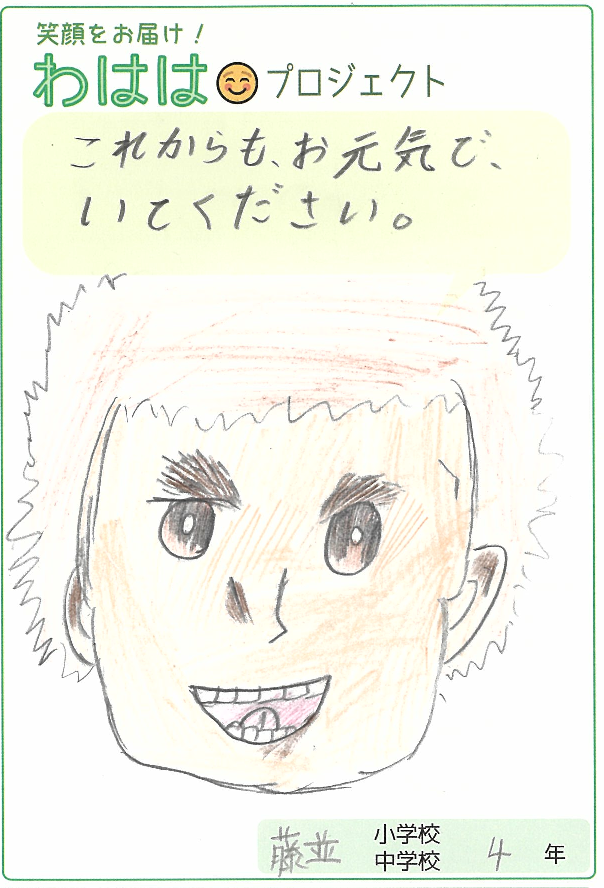 笑顔をお届け！
わはは プロジェクト
これからも、お元気で、
いてください。
藤並 小学校 4 年
中学校